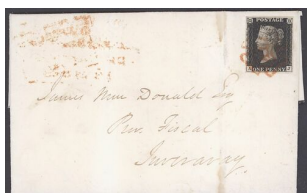 POSTAGE
ONE PENNY
James Mac Donald Esq
Fiscal
Inveraray